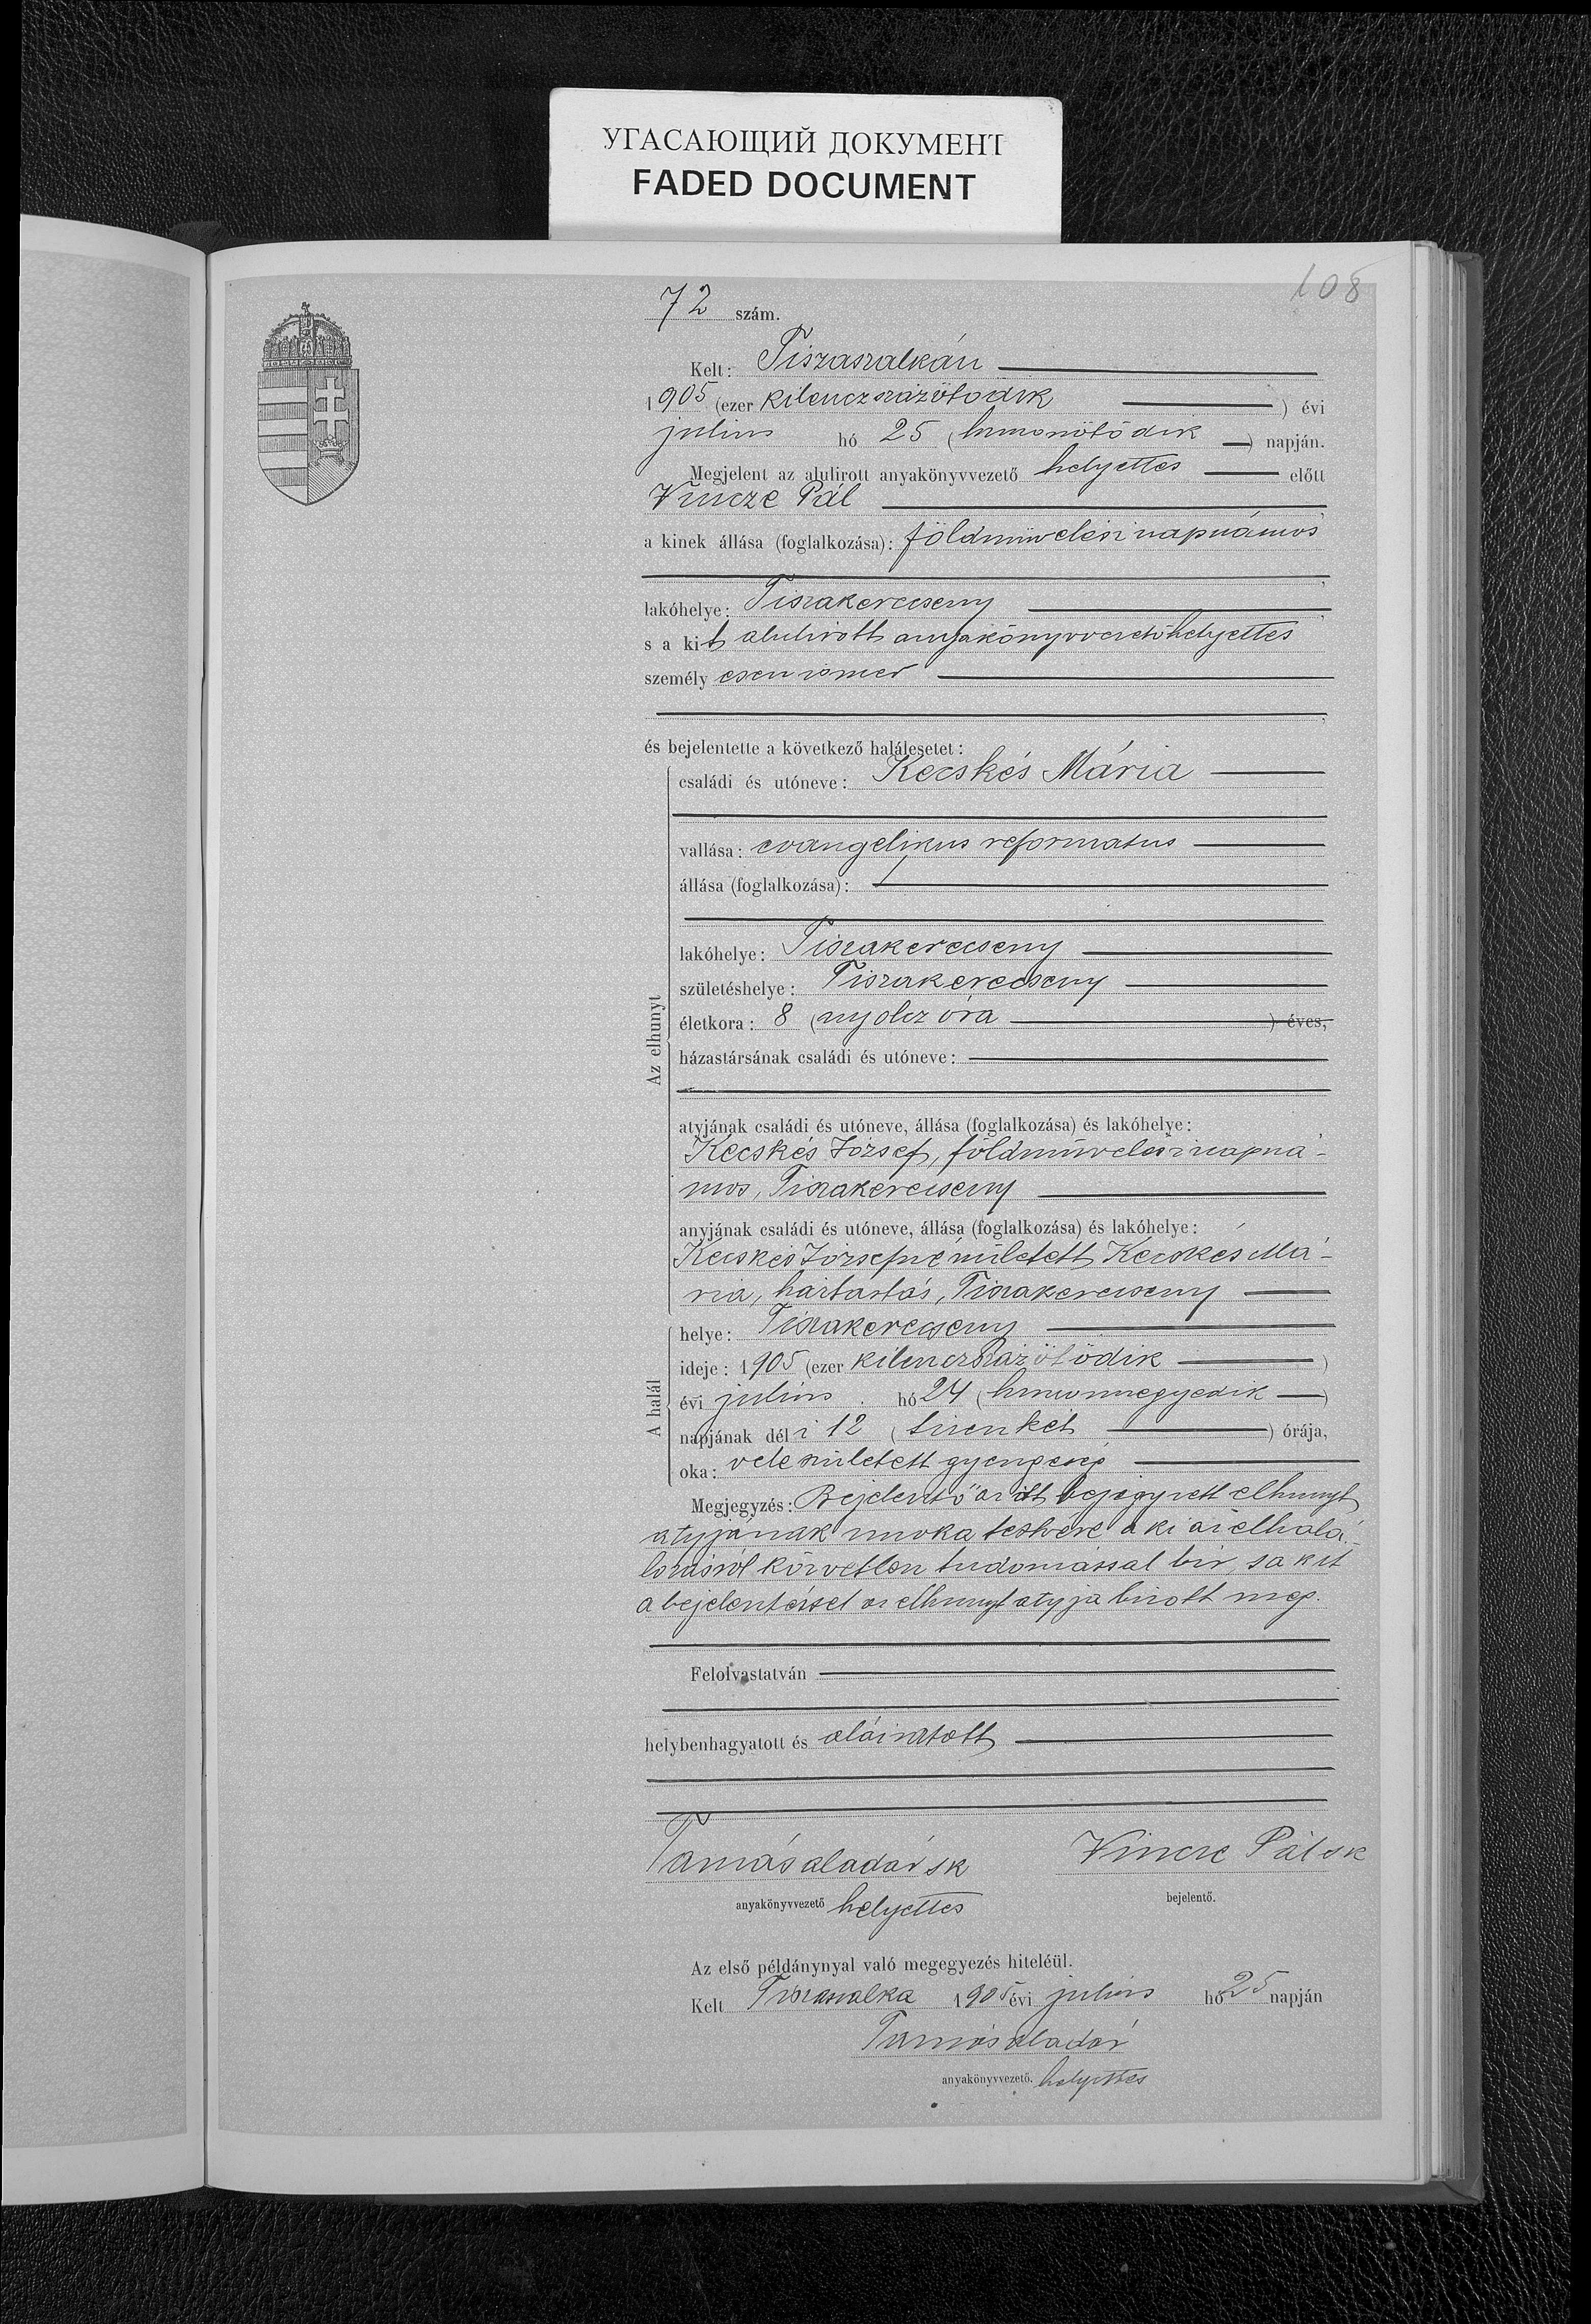 УГАСАЮЩИЙ ДОКУМЕНТ
FADED DOCUMENT
108
72 szám.
Kelt: Tiszaszalkán
1905 (ezer kilenczszázötödik) évi
julius hó 25 (huszonötödik) napján.
Megjelent az alulirott anyakönyvvezető helyettes előtt
Vincze Pál
a kinek állása (foglalkozása): földmüvelési napszámos
lakóhelye: Tiszakerecseny
s a kit alulirott anyakönyvvezetőhelyettes
személyesen ismer
és bejelentette a következő halálesetet:
családi és utóneve: Kecskés Mária
vallása: evangelikus reformatus
állása (foglalkozása):
lakóhelye: Tiszakerecseny
születéshelye: Tiszakerecseny
Az elhunyt
életkora: 8 (nyolcz óra) éves,
házastársának családi és utóneve:
atyjának családi és utóneve, állása (foglalkozása) és lakóhelye:
Kecskés József, földmüvelési napszá-
mos, Tiszakerecseny
anyjának családi és utóneve, állása (foglalkozása) és lakóhelye:
Kecskés Józsefné született Kecskés Má-
ria, háztartás, Tiszakerecseny
helye: Tiszakerecseny
ideje: 1905 (ezer kilenczszázötödik)
A halál
évi julius hó 24 (huszonnegyedik)
napjának déli 12 (tizenkét) órája,
oka: vele született gyengeség
Megjegyzés: Bejelentő az itt bejegyzett elhunyt
atyjának unoka testvére a ki az elhalá-
lozásról közvetlen tudomással bir, s a kit
a bejelentéssel az elhunyt atyja bizott meg.
Felolvastatván
helybenhagyatott és aláiratott
Tamás Aladár sk Vincze Pál sk
anyakönyvvezető helyettes bejelentő.
Az első példánynyal való megegyezés hiteléül.
Kelt Tiszaszalka 1905 évi julius hó 25 napján
Tamás Aladár
anyakönyvvezető. helyettes